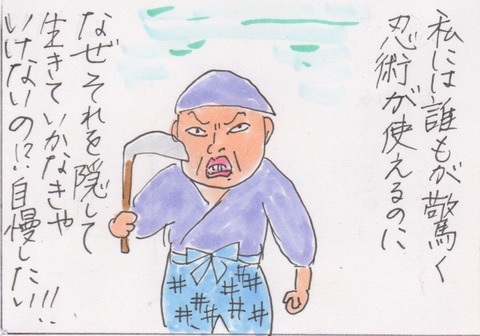 私には誰もが驚く
忍術が使えるのに
なぜそれを隠して
生きていかなきゃ
いけないの!?自慢したい!!